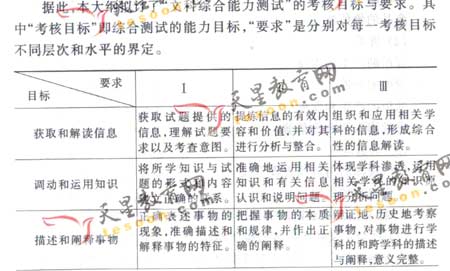 据此,本大纲拟 了“文科综合能力测试”的考核目标与要求。其
中“考核目标”即综合测试的能力目标,“要求”是分别对每一考核目标
不同层次和水平的界定。
要求
目标
Ⅰ
Ⅱ
Ⅲ
获取和解读信息
获取试题提供的
信息,理解试题要
求以及考查意图。
提炼信息的有效内
容和价值,并对其
进行分析与整合。
组织和应用相关学
科的信息,形成综合
性的信息解读。
调动和运用知识
将所学知识与试
题的形式和内容
正确的 系。
准确地运用相关
知识和有关信息
认识和说明问题。
体现学科渗透,
相关学科的知识
分析问题
描述和阐释事物
正确表 事物的
现象,准确描述和
解释事物的特征。
把握事物的本质
和规律,并作出正
确的阐释。
辩证地、历史地考察
事物,对事物进行学
科的和跨学科的描述
与阐释,意义完整。
天星教育网
tesoon.com
天星教育网
tesoon.com
天星教育网
tesoon.com
tesoon